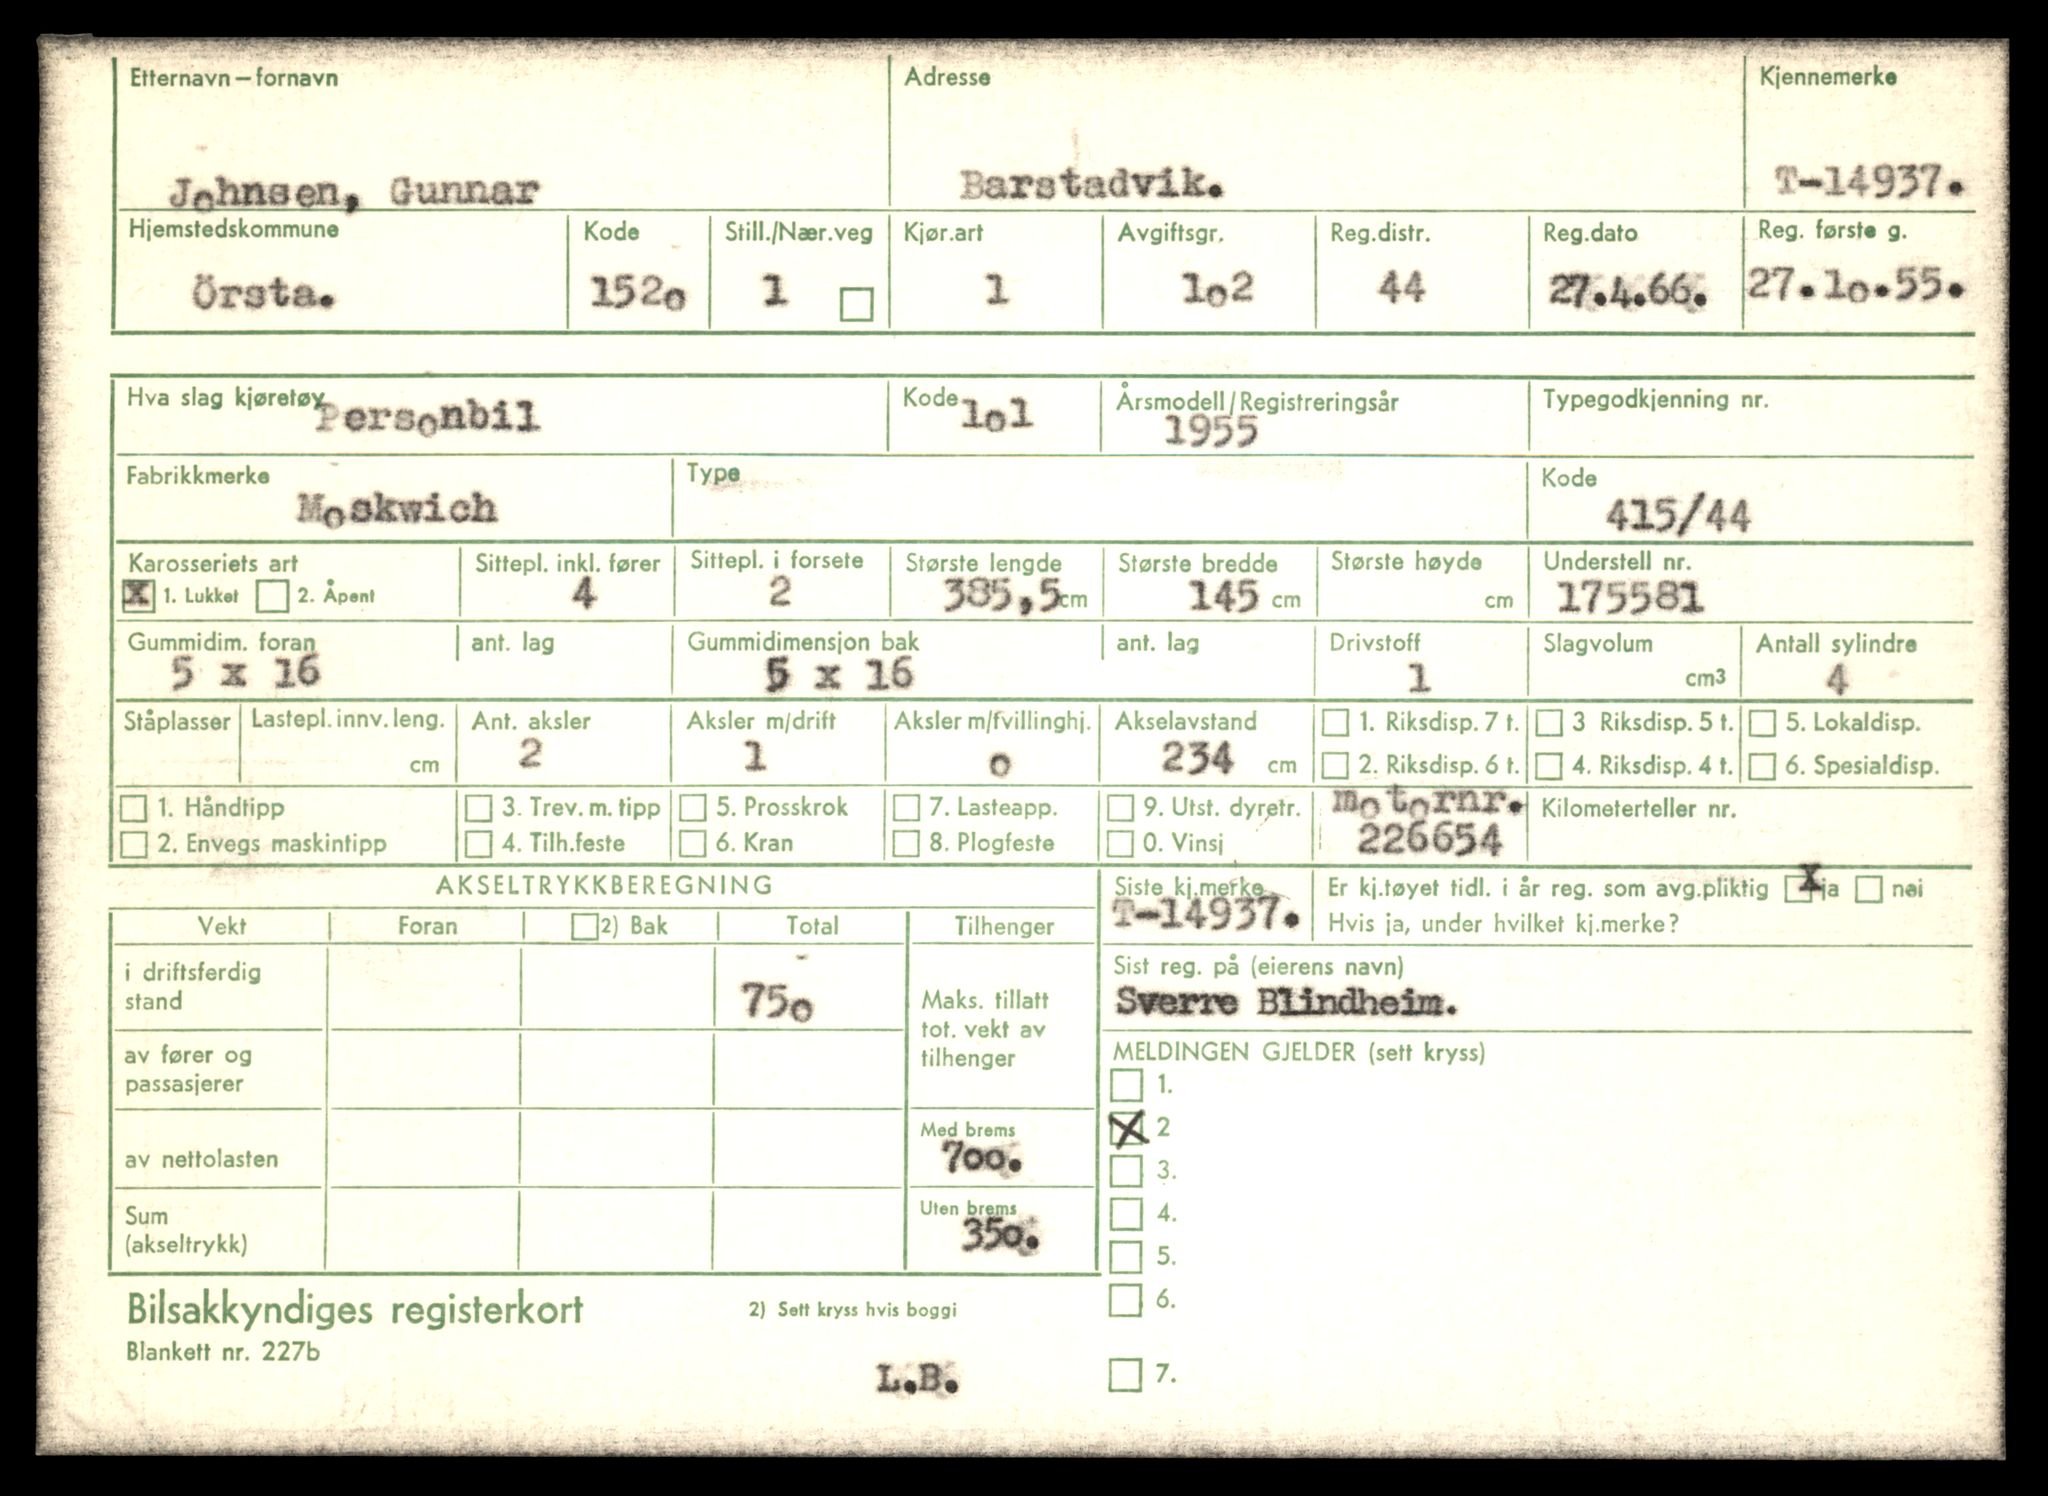 Etternavn – fornavn Adresse Kjennemerke
Johnsen, Gunnar Barstadvik. T-14937.
Hjemstedskommune Kode Still./Nær.veg Kjør.art Avgiftsgr. Reg.distr. Reg.dato Reg. første g.
Örsta. 1520 1 1 102 44 27.4.66. 27.10.55.
Hva slag kjøretøy Personbil Kode 101 Årsmodell/Registreringsår Typegodkjenning nr.
1955
Fabrikkmerke Type Kode
Moskwich 415/44
Karosseriets art Sittepl. inkl. fører Sittepl. i forsete Største lengde Største bredde Største høyde Understell nr.
X 1. Lukket 2. Åpent 4 2 385,5 cm 145 cm cm 175581
Gummidim. foran ant. lag Gummidimensjon bak ant. lag Drivstoff Slagvolum Antall sylindre
5 x 16 5 x 16 1 cm3 4
Ståplasser Lastepl. innv. leng. Ant. aksler Aksler m/drift Aksler m/fvillinghj. Akselavstand 1. Riksdisp. 7 t. 3 Riksdisp. 5 t. 5. Lokaldisp.
cm 2 1 0 234 cm 2. Riksdisp. 6 t. 4. Riksdisp. 4 t. 6. Spesialdisp.
1. Håndtipp 3. Trev. m. tipp 5. Prosskrok 7. Lasteapp. 9. Utst. dyretr. motornr. Kilometerteller nr.
2. Envegs maskintipp 4. Tilh.feste 6. Kran 8. Plogfeste 0. Vinsj 226654
AKSELTRYKKBEREGNING Siste kj.merke Er kj.tøyet tidl. i år reg. som avg.pliktig X ja nei
Vekt Foran 2) Bak Total Tilhenger T-14937. Hvis ja, under hvilket kj.merke?
i driftsferdig stand 750 Maks. tillatt tot. vekt av tilhenger Sist reg. på (eierens navn)
Sverre Blindheim.
av fører og passasjerer MELDINGEN GJELDER (sett kryss)
1.
av nettolasten Med brems X 2
700. 3.
Sum (akseltrykk) Uten brems 4.
350. 5.
Bilsakkyndiges registerkort 2) Sett kryss hvis boggi 6.
Blankett nr. 227b
L.B. 7.